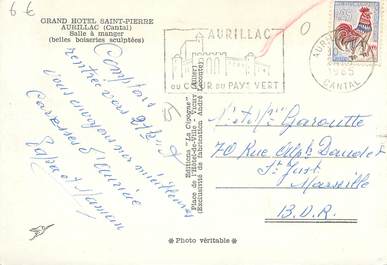 6 €
GRAND HOTEL SAINT-PIERRE
AURILLAC (Cantal)
Salle à manger
(belles boiseries sculptées)
Comptons
rentrer vers
vous envoyons nos meilleures
Caresses
Papa et Maman
Editions "La Cigogne"
Place de l'Hôtel-de-Ville - Vichy (Allier)
(Exclusivité de fabrication André Leconte)
* Photo véritable *
AURILLAC
AU CŒUR DU PAYS VERT
AURILLAC
1965
CANTAL
Garoutte
70 Rue Alph. Daudet
St Just
Marseille
B.D.R.